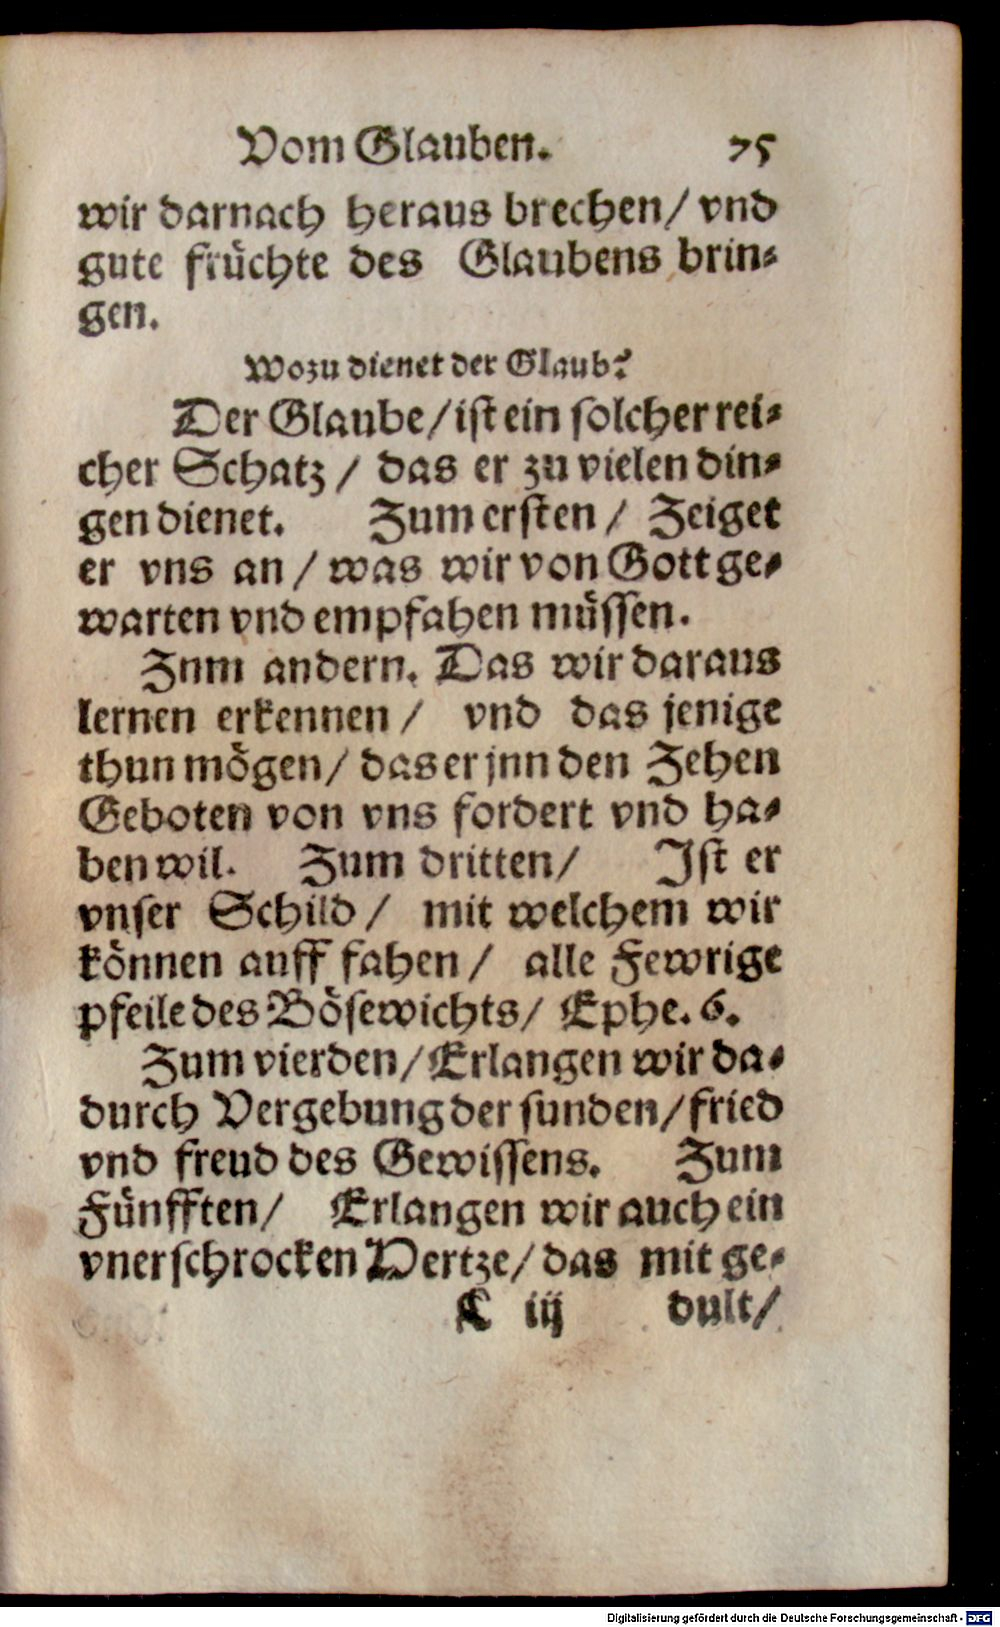 Vom Glauben. 75
wir darnach heraus brechen/ vnd
gute früchte des Glaubens brin-
gen.
Wozu dienet der Glaub?
Der Glaube/ ist ein solcher rei-
cher Schatz/ das er zu vielen din-
gen dienet. Zum ersten/ Zeiget
er vns an/ was wir von Gott ge-
warten vnd empfahen müssen.
Znm andern. Das wir daraus
lernen erkennen/ vnd das jenige
thun mögen/ das er jnn den Zehen
Geboten von vns fordert vnd ha-
ben wil. Zum dritten/ Ist er
vnser Schild/ mit welchem wir
können auff fahen/ alle Fewrige
pfeile des Bösewichts/ Ephe. 6.
Zum vierden/ Erlangen wir da-
durch Vergebung der sunden/ fried
vnd freud des Gewissens. Zum
Fünfften/ Erlangen wir auch ein
vnerschrocken Hertze/ das mit ge-
K iij dult/
Digitalisierung gefördert durch die Deutsche Forschungsgemeinschaft - DFG